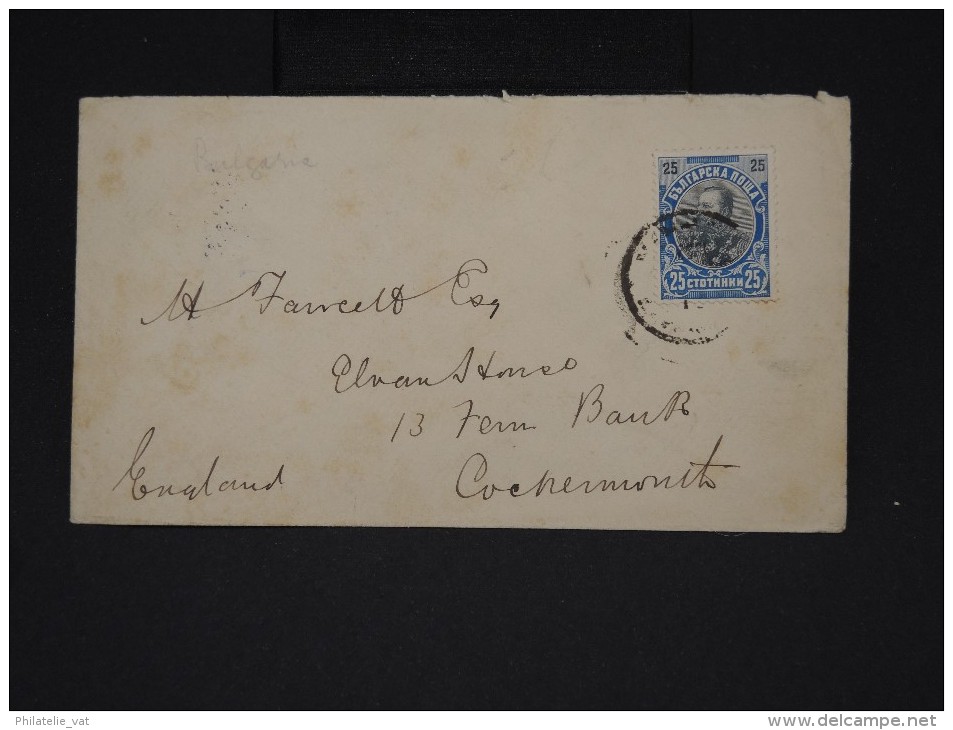 Bulgaria
25 25
БЪЛГАРСКА ПОЩА
25 СТОТИНКИ 25
H Fawcett Esq
Elvan House
13 Fern Bank
England Cockermouth
Philatelie_vat
www.delcampe.net